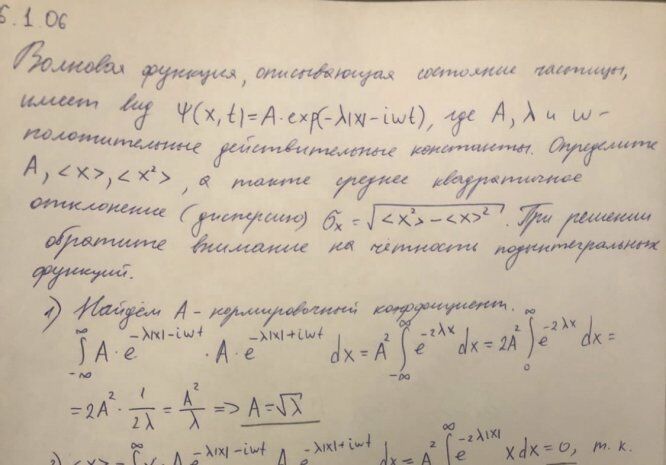 6.1.06
Волновая функция, описывающая состояние частицы,
имеет вид Ψ(x,t)=A·exp(-λ|x|-iωt), где A, λ и ω-
положительные действительные константы. Определите
A, <x>, <x²>, а также среднее квадратичное
отклонение (дисперсию) σₓ = √(<x²>-<x>²). При решении
обратите внимание на чётность подынтегральных
функций.
1) Найдём A - нормировочный коэффициент.
∫_{-∞}^{∞} A·e^{-λ|x|-iωt} · A·e^{-λ|x|+iωt} dx = A² ∫_{-∞}^{∞} e^{-2λx} dx = 2A² ∫_{0}^{∞} e^{-2λx} dx =
= 2A² · 1/2λ = A²/λ => A=√λ
2) <x> = ∫^{∞} x·A e^{-λ|x|-iωt} A e^{-λ|x|+iωt} dx = A² ∫^{∞} e^{-2λ|x|} x dx = 0, т.к.